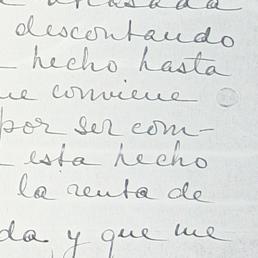 descontando
hecho hasta
ue conviene
por ser com-
esta hecho
la renta de
da y que me